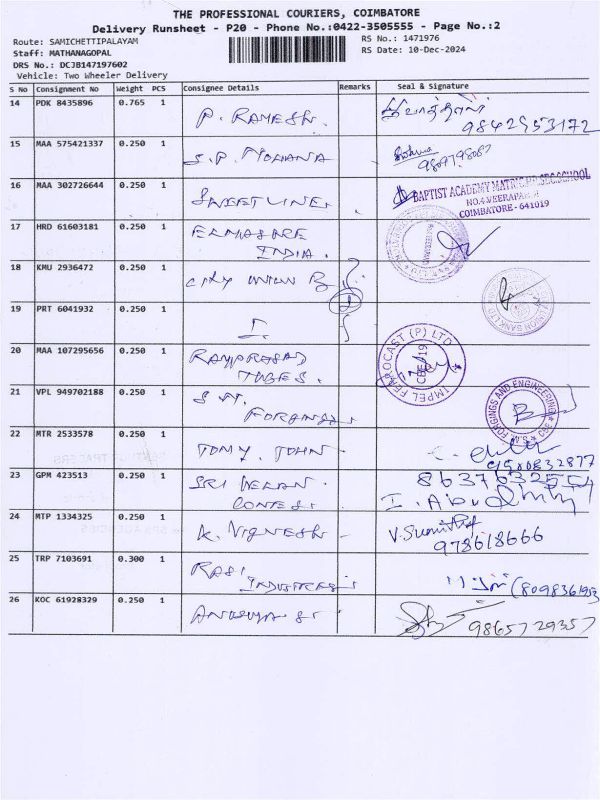 THE PROFESSIONAL COURIERS, COIMBATORE
Delivery Runsheet - P20 - Phone No.:0422-3505555 - Page No.:2
Route: SAMICHETTIPALAYAM RS No.: 1471976
Staff: MATHANAGOPAL RS Date: 10-Dec-2024
DRS No.: DCJB147197602
Vehicle: Two Wheeler Delivery
S No Consignment No Weight PCS Consignee Details Remarks Seal & Signature
14 PDK 8435896 0.765 1 P. RAMESH.
9842953172
15 MAA 575421337 0.250 1 S.P. MOHANA
9809798087
16 MAA 302726644 0.250 1 SWEETLINE. BAPTIST ACADEMY MATRIC.HR.SEC.SCHOOL
COIMBATORE - 641019
17 HRD 61603181 0.250 1
INDIA.
18 KMU 2936472 0.250 1 CITY UNION B
19 PRT 6041932 0.250 1
20 MAA 107295656 0.250 1 RAMPRASAD IMPEL FERROCAST (P) LTD CBE-19
TUBES.
21 VPL 949702188 0.250 1 S.N. FORGINGS AND ENGINEERING
FORGINGS
22 MTR 2533578 0.250 1 TOMY. JOHN
23 GPM 423513 0.250 1 SRI
24 MTP 1334325 0.250 1 K. VIGNESH
978618666
25 TRP 7103691 0.300 1 RASI
INDUSTRIES (8098361953
26 KOC 61928329 0.250 1 9865729357